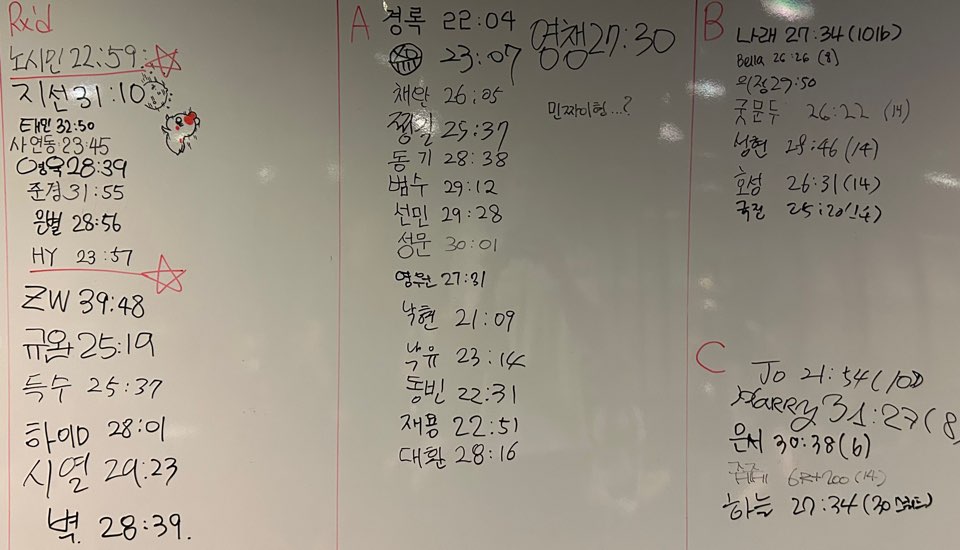 Rx'd
노시민 22:59
지선 31:10
태민 32:50
사연동 23:45
영욱 28:39
준경 31:55
은별 28:56
HY 23:57
ZW 39:48
규옵 25:19
득수 25:37
하이D 28:01
시열 29:23
벽. 28:39.
A
경록 22:04
23:07
영챙 27:30
채안 26:05
민짜이형...?
찡길 25:37
동기 28:38
범수 29:12
선민 29:28
성문 30:01
영우원 27:31
낙현 21:09
낙유 23:14
동빈 22:31
재용 22:51
대환 28:16
B
나래 27:34 (10lb)
Bella 26:26 (8)
의정 29:50
굿문두 26:22 (14)
성현 28:46 (14)
호성 26:31 (14)
국진 25:20 (14)
C
Jo 21:54 (10)
HARRY 31:27 (8)
은서 30:38 (6)
6R+200 (14)
하늘 27:34 (30